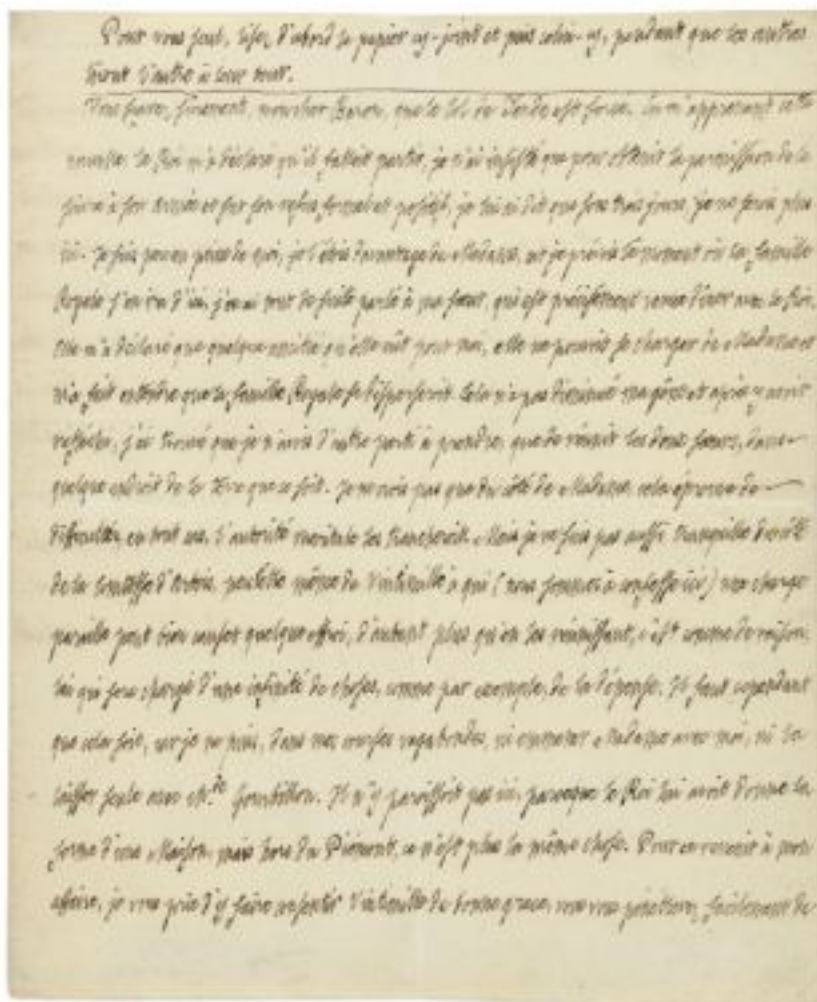 Pour vous seul, lisez d'abord le papier cy-joint et puis celui-cy, pendant que les autres
liront l'autre à leur tour.
Vous savez, sûrement, mon cher Baron, que le Col de Tende est forcé. En m'apprenant cette
nouvelle, le Roi m'a déclaré qu'il falloit partir, je n'ai insisté que pour obtenir la permission de le
suivre à son armée et sur son refus formel et positif, je lui ai dit que sous trois jours, je ne serois plus
ici. Je suis peu en peine de moi, je l'étois davantage de Madame, car je prévois le moment où la famille
Royale s'en ira d'ici, j'en ai tout de suite parlé à ma sœur, qui est précisément venue dîner avec le Roi.
Elle m'a déclaré que quelque amitié qu'elle eût pour moi, elle ne pouvoit se charger de Madame et
m'a fait entendre que la famille Royale se disperseroit. Cela n'a pas diminué ma gêne et après y avoir
réfléchi, j'ai trouvé que je n'avois d'autre parti à prendre, que de réunir les deux sœurs, dans
quelque endroit de la terre que ce soit. Je ne crois pas que du côté de Madame, cela éprouve de
difficultés, en tout cas, l'autorité maritale les trancheroit. Mais je ne suis pas aussi tranquille du côté
de la Comtesse d'Artois, peut-être même de Vintimille à qui (nous sommes à confesse ici) une charge
pareille peut bien causer quelque effroi, d'autant plus qu'en les réunissant, c'est comme de raison,
lui qui sera chargé d'une infinité de choses, comme par exemple, de la dépense. Il faut cependant
que cela soit, car je ne puis, dans mes courses vagabondes, ni emmener Madame avec moi, ni la
laisser seule avec M.de Gourbillon. Il n'y paroissoit pas ici, parceque le Roi lui avoit donné la
forme d'une Maison, mais hors du Piémont, ce n'est plus la même chose. Pour en revenir à mon
affaire, je vous prie d'y faire consentir Vintimille de bonne grace, vous vous  facilement de